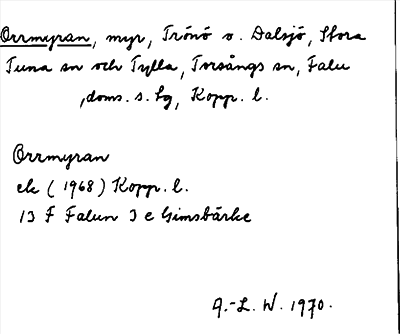 Orrmyran, myr, Trönö o. Dalsjö, Stora
Tuna sn och Tylla, Torsångs sn, Falu
doms. s. lg, Kopp. l.
Orrmyran
ek (1968) Kopp. l.
13 F Falun 3 e Gimsbärke
A.-L. W. 1970.